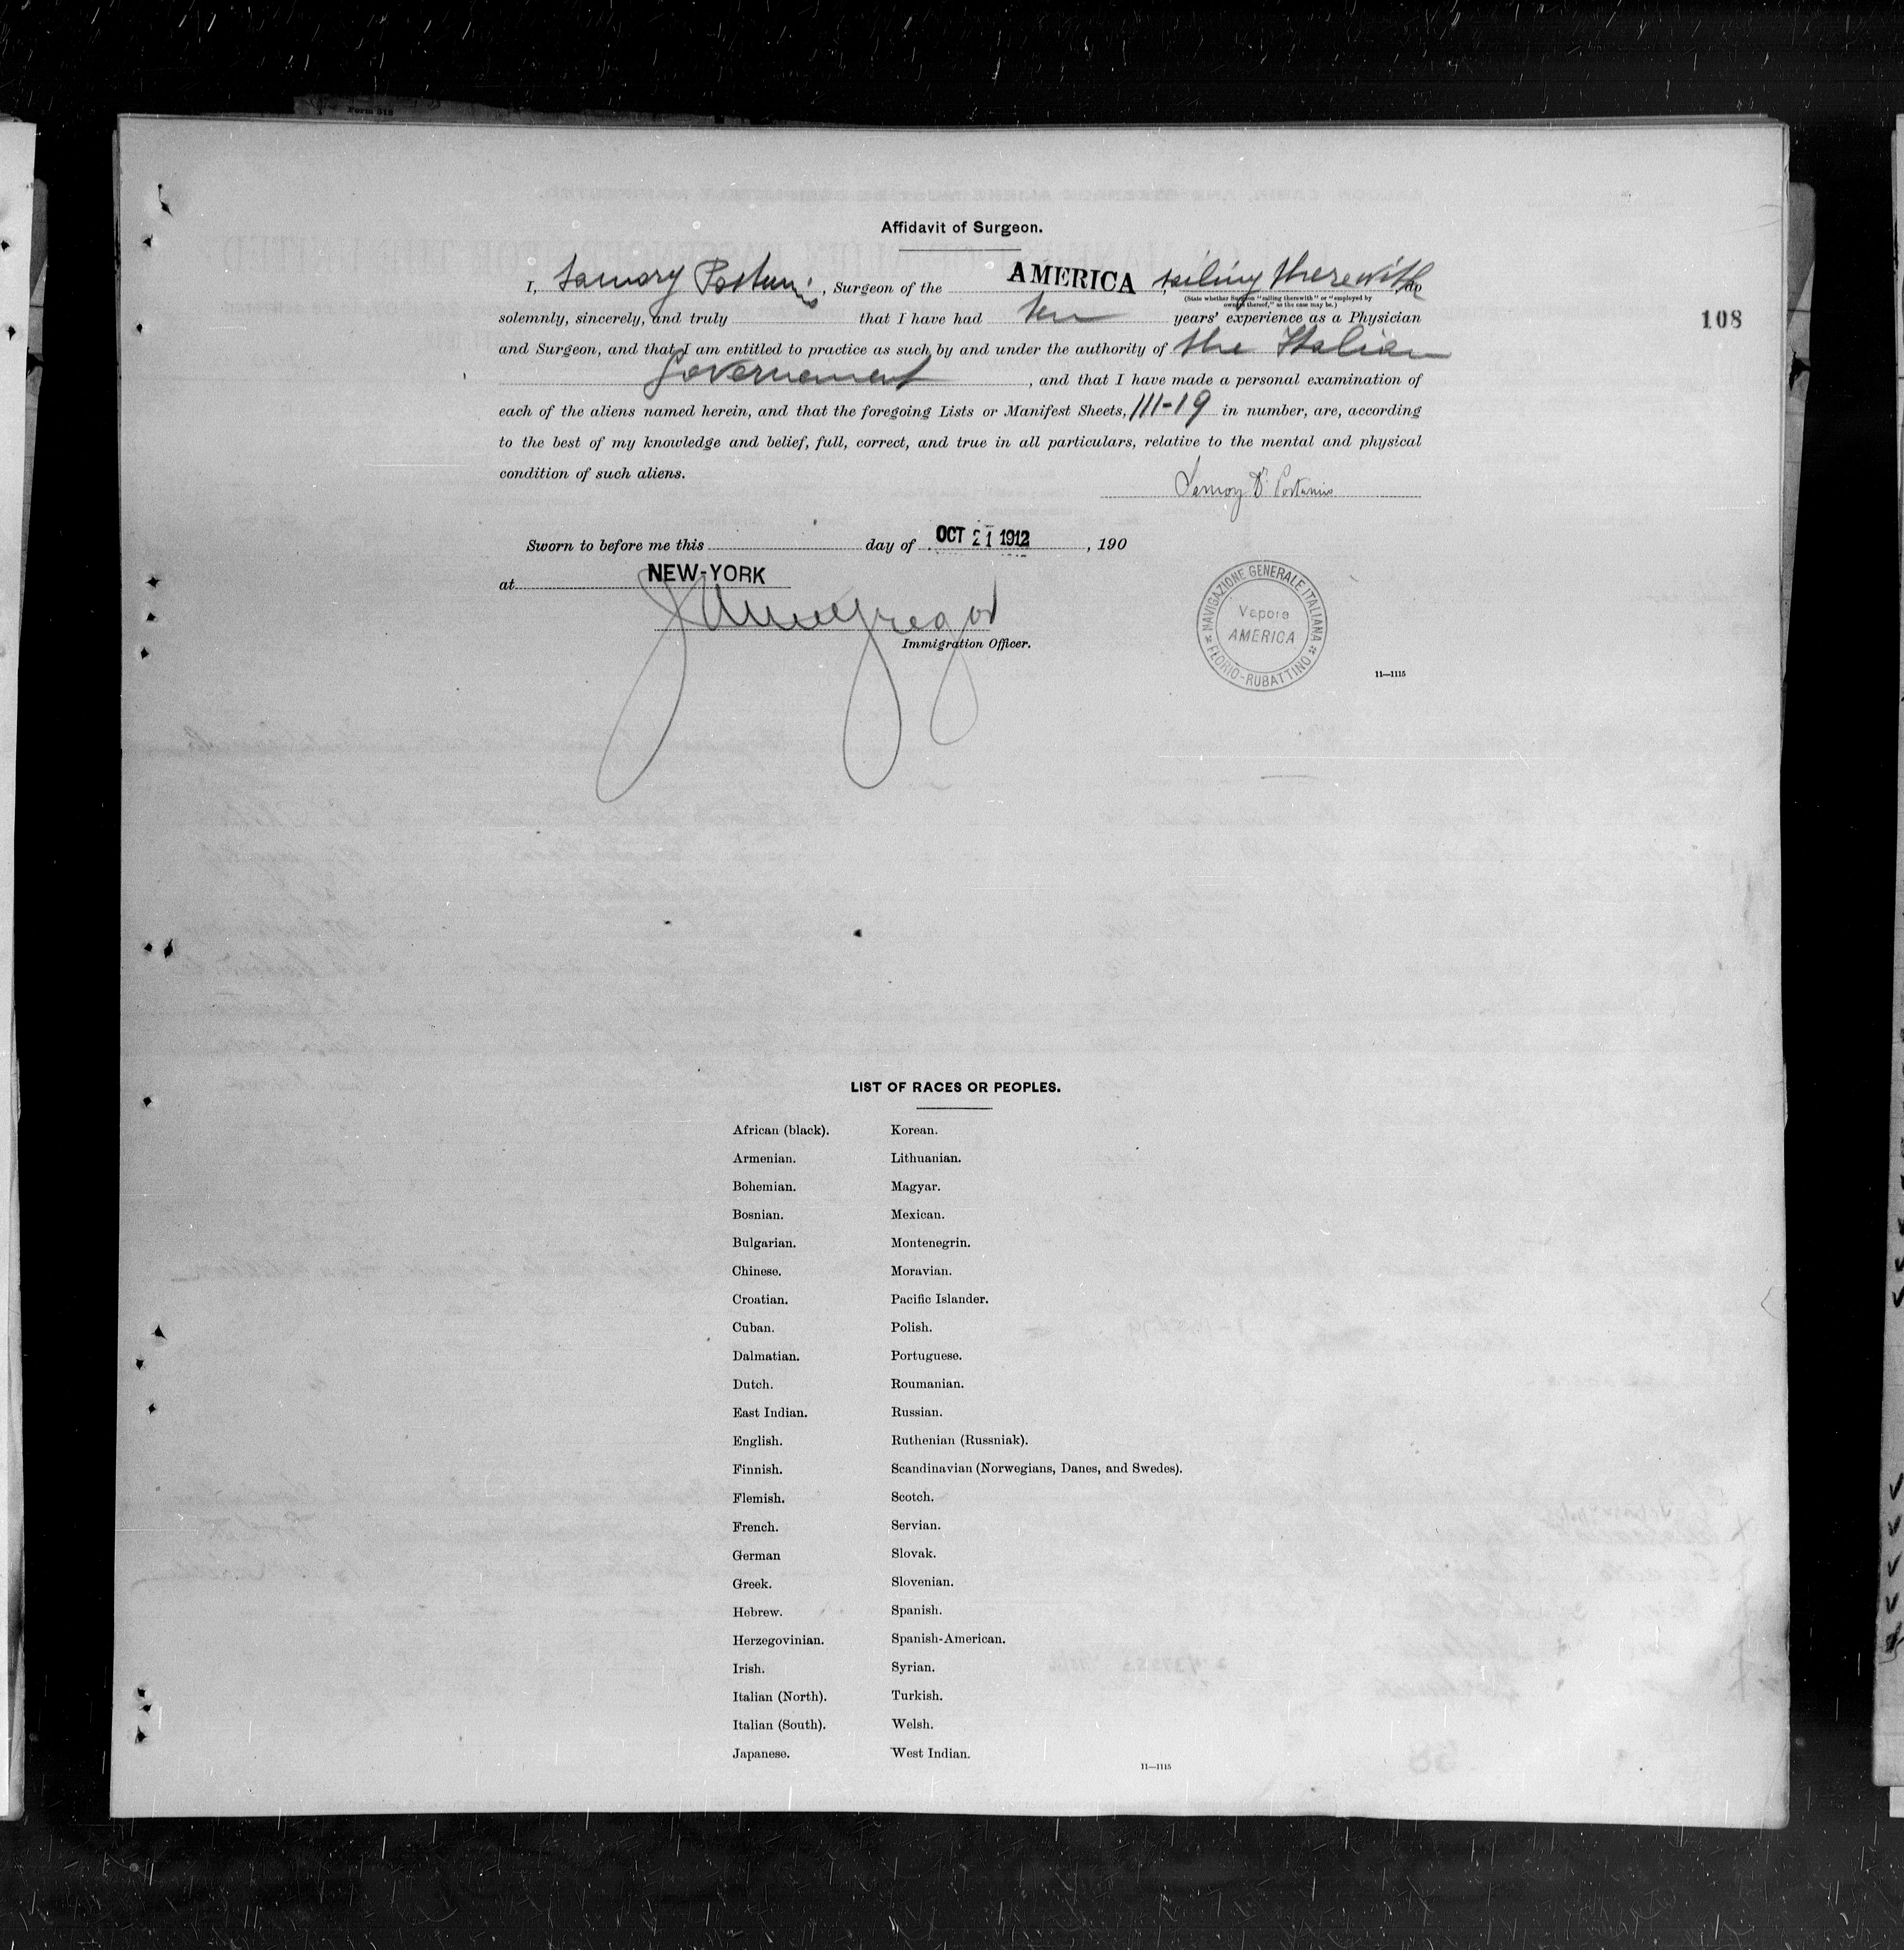 Form 518
Affidavit of Surgeon.
I, Postumio, Surgeon of the AMERICA, sailing therewith, do
(State whether Surgeon "sailing therewith" or "employed by
owners thereof," as the case may be.)
solemnly, sincerely, and truly that I have had ten years' experience as a Physician
and Surgeon, and that I am entitled to practice as such by and under the authority of the Italian
Governement, and that I have made a personal examination of
each of the aliens named herein, and that the foregoing Lists or Manifest Sheets, III-19 in number, are, according
to the best of my knowledge and belief, full, correct, and true in all particulars, relative to the mental and physical
condition of such aliens.
Dr Postumio
Sworn to before me this day of OCT 21 1912, 190
at NEW-YORK
Immigration Officer.
NAVIGAZIONE GENERALE ITALIANA
FLORIO-RUBATTINO
Vapore
AMERICA
11—1115
108
LIST OF RACES OR PEOPLES.
African (black). Korean.
Armenian. Lithuanian.
Bohemian. Magyar.
Bosnian. Mexican.
Bulgarian. Montenegrin.
Chinese. Moravian.
Croatian. Pacific Islander.
Cuban. Polish.
Dalmatian. Portuguese.
Dutch. Roumanian.
East Indian. Russian.
English. Ruthenian (Russniak).
Finnish. Scandinavian (Norwegians, Danes, and Swedes).
Flemish. Scotch.
French. Servian.
German Slovak.
Greek. Slovenian.
Hebrew. Spanish.
Herzegovinian. Spanish-American.
Irish. Syrian.
Italian (North). Turkish.
Italian (South). Welsh.
Japanese. West Indian.
11—1115